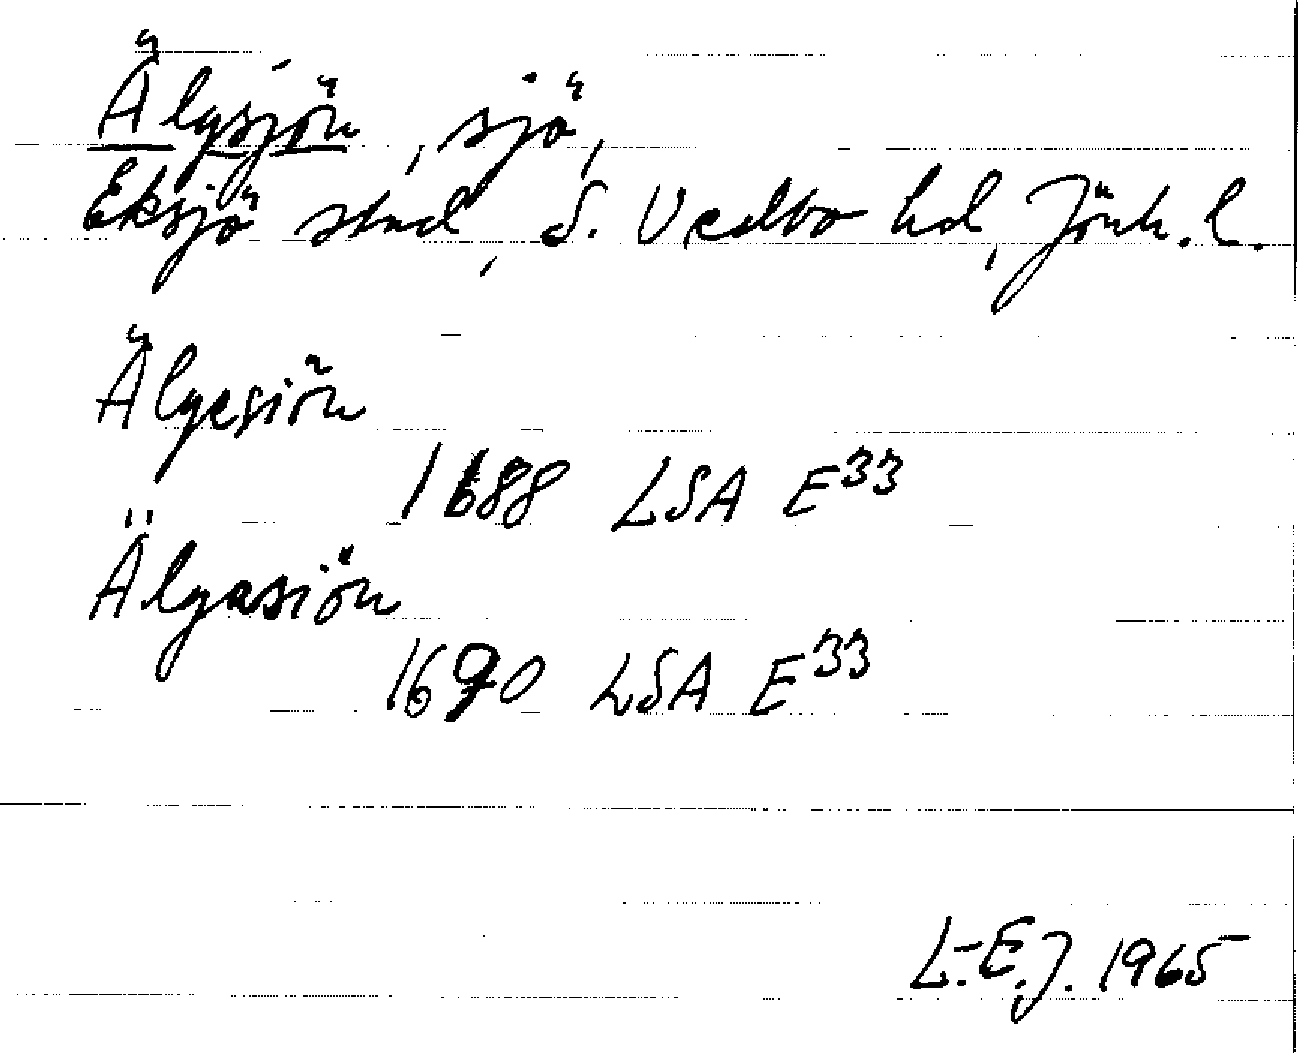 Älgsjön, sjö,
Eksjö stad, S. Vedbo hd, Jönk. l.
Älgesiön
1688 LSA E33
Älgasiön
1690 LSA E33
L.E.J. 1965